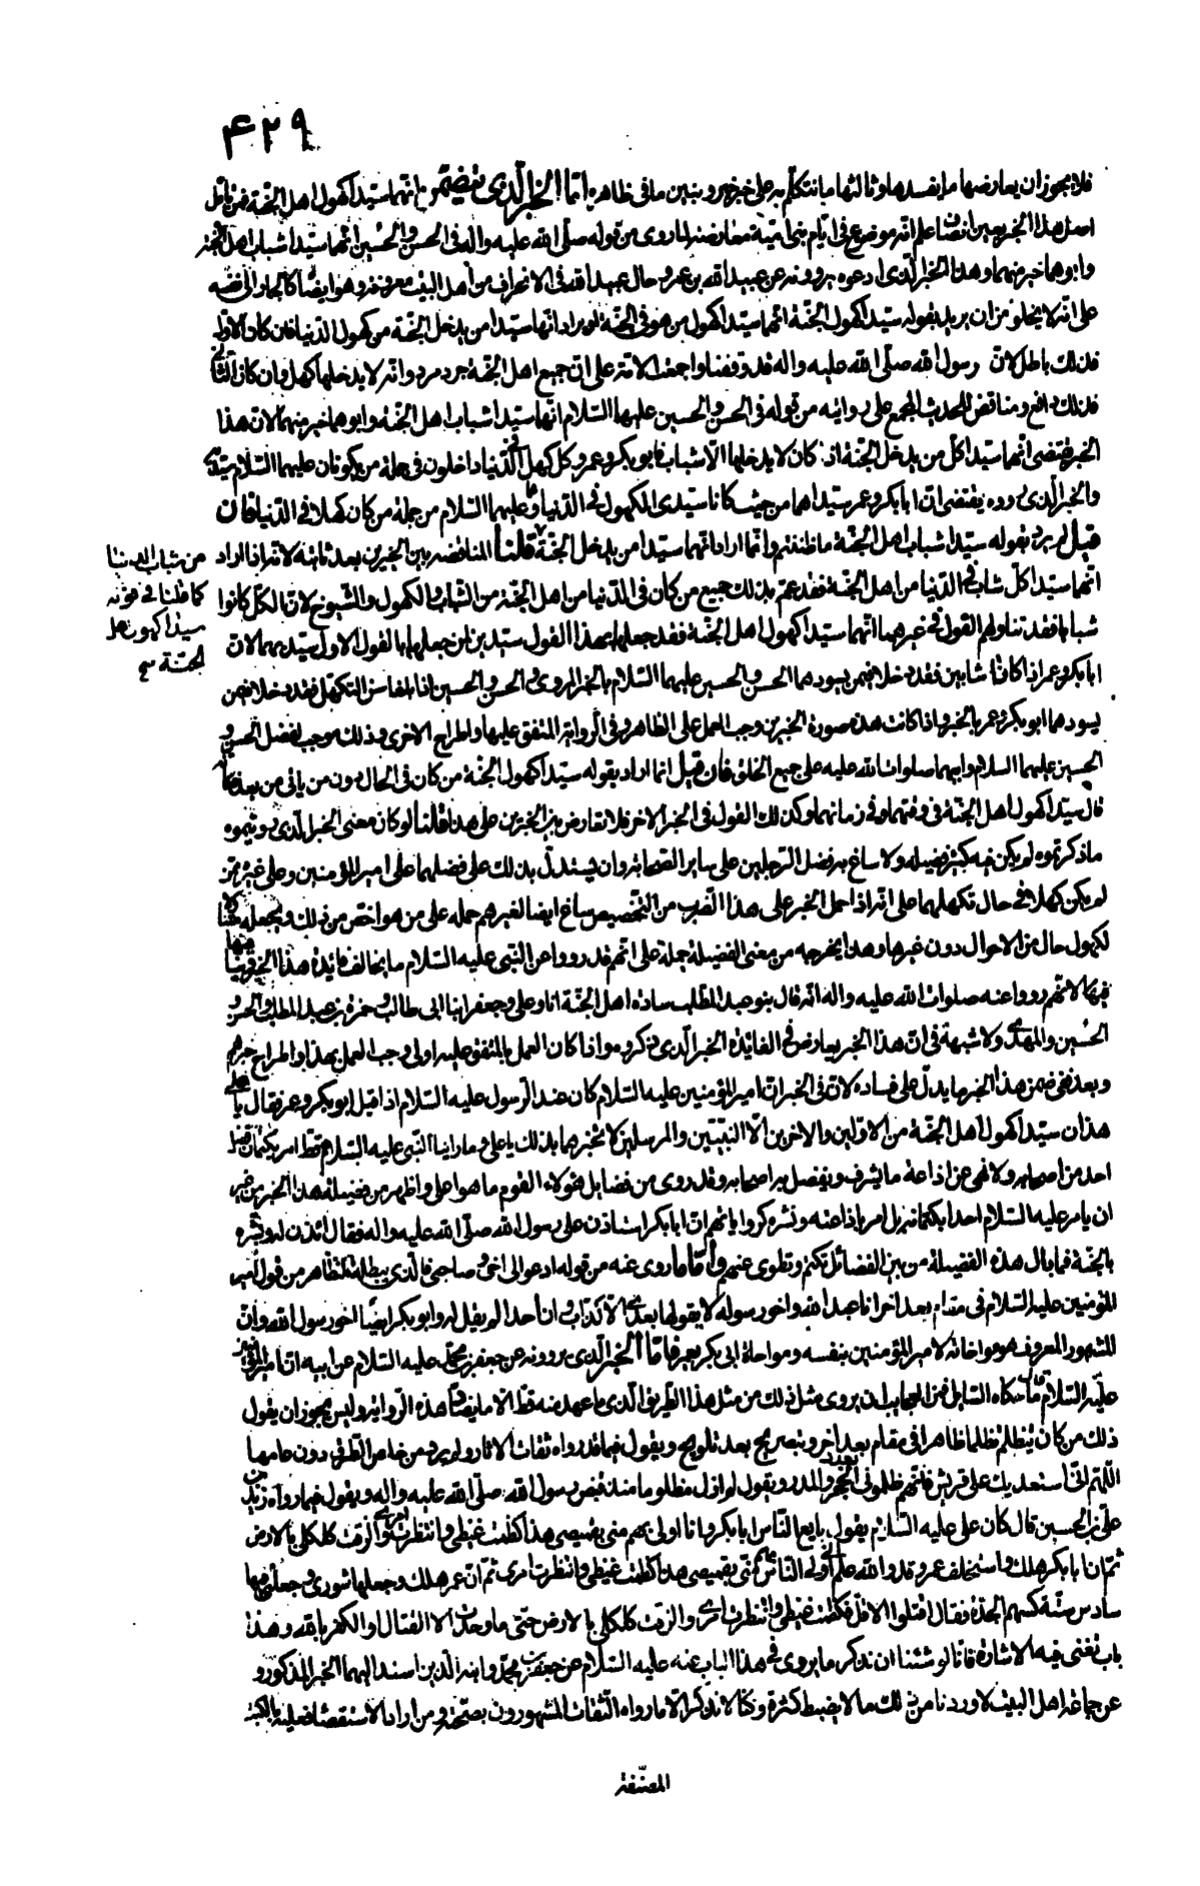 ۴۲۹
فلا يجوز ان يعارضها ما يفسدها وثالثها ما نتكلم به على خبر خبر ونبين ما فى ظاهره اما الخبر الذى يتضمن انهما سيدا كهول اهل الجنة فمن تأمل
اصل هذا الخبر بعين انصاف علم انه موضوع فى ايام بنى امية معارضة لما روى من قوله صلى الله عليه واله فى الحسن والحسين انهما سيدا شباب اهل الجنة
وابوهما خير منهما وهذا الخبر الذى ادعوه يروونه عن عبيد الله بن عمر وحال عبيد الله فى الانحراف من اهل البيت معروفة وهو ايضا كالجار الى نفسه
على انه لا يخلو من ان يريد بقوله سيدا كهول الجنة انهما سيدا كهول من هو فى الجنة او يراد انهما سيدا من يدخل الجنة من كهول الدنيا فان كان الاول
فذلك باطل لان رسول الله صلى الله عليه واله قد وقفنا واجمعت الامة على ان جميع اهل الجنة جرد مرد وانه لا يدخلها كهل وان كان الثانى
فذلك دافع ومناقض للحديث المجمع على روايته من قوله فى الحسن والحسين عليهما السلام انهما سيدا شباب اهل الجنة وابوهما خير منهما لان هذا
الخبر يقتضى انهما سيدا كل من يدخل الجنة اذ كان لا يدخلها الا شباب فابو بكر وعمر وكل كهل فى الدنيا داخلون فى جملة من يكونان عليهما السلام سيديه
والخبر الذى رووه يقتضى ان ابا بكر وعمر سيداهما من حيث كانا سيدى الكهول فى الدنيا وهما عليهما السلام من جملة من كان كهلا فى الدنيا فان
قيل لم يرد بقوله سيدا شباب اهل الجنة ما ظننتم وانما اراد انهما سيدا من يدخل الجنة قلنا المناقضة بين الخبرين بعد ثابتة لانه اذا اراد
من شباب الدنيا
كما قلنا فى قوله
سيدا كهول اهل
الجنة صح
انهما سيدا كل شاب فى الدنيا من اهل الجنة فقد عم بذلك جميع من كان فى الدنيا من اهل الجنة من الشباب والكهول والشيوخ لان الكل كانوا
شبابا فقد تناولهم القول فى خبرهما انهما سيدا كهول اهل الجنة فقد جعلهما بهذا القول سيدين لمن جعلهما بالقول الاول سيديهما لان
ابا بكر وعمر اذا كانا شابين فقد دخلا فيمن يسودهما الحسن والحسين عليهما السلام بالخبر المروى والحسن والحسين اذا بلغا سن التكهل فقد دخلا فيمن
يسودهما ابو بكر وعمر بالخبر واذا كانت هذه صورة الخبرين وجب العمل على الظاهر فى الرواية المتفق عليها واطراح الاخرى وذلك موجب لفضل الحسن و
الحسين عليهما السلام وابيهما صلوات الله عليه على جميع الخلق فان قيل انما اراد بقوله سيدا كهول الجنة من كان فى الحال دون من ياتى من بعد فكانه
قال سيدا كهول اهل الجنة فى وقتهما وفى زمانهما وكذلك القول فى الخبر الاخر فلا تعارض بين الخبرين على هذا قلنا لو كان معنى الخبر الذى رويتموه
ما ذكرتموه لم يكن فيه كثير فضيلة ولا ساغ به فضل الرجلين على ساير الصحابة وان يستدل بذلك على فضلهما على امير المؤمنين وعلى غيره ممن
لم يكن كهلا فى حال تكهلهما على انه اذا احمل الخبر على هذا الضرب من التخصيص ساغ ايضا لغيرهم حمله على من هو اخص من ذلك ويجعله
لكهول حال من الاحوال دون غيرها وهذا يخرجه من معنى الفضيلة جملة على انهم قد رووا عن النبى عليه السلام ما يخالف فائدة هذا الخبر
فيها لانهم رووا عنه صلوات الله عليه واله انه قال بنو عبد المطلب سادة اهل الجنة انا وعلى وجعفر ابنا ابى طالب وحمزة بن عبد المطلب والحسن و
الحسين والمهدى ولا شبهة فى ان هذا الخبر يعارض فى الفائدة الخبر الذى ذكروه واذا كان العمل بالمتفق عليه اولى وجب العمل بهذا واطراح خبرهم
وبعد ففى ضمن هذا الخبر ما يدل على فساده لان فى الخبر ان امير المؤمنين عليه السلام كان عند الرسول عليه السلام اذ اقبل ابو بكر وعمر فقال يا على
هذان سيدا كهول اهل الجنة من الاولين والاخرين الا النبيين والمرسلين لا تخبرهما بذلك يا على وما راينا النبى عليه السلام قط امر بكتمان فضل
احد من اصحابه ولا نهى عن اذاعة ما يشرف ويفضل به اصحابه وقد روى من فضايل هؤلاء القوم ما هو اعلى واظهر من فضيلة هذا الخبر من غير
ان يامر عليه السلام احدا بكتمانه بل امر باذاعته ونشره كروايتهم ان ابا بكر استاذن على رسول الله صلى الله عليه واله فقال ائذن له وبشره
بالجنة فما بال هذه الفضيلة من بين الفضائل تكتم وتطوى عنهم واما ما روى عنه من قوله ادعوا لى اخى وصاحبى فالذى يبطله المتظاهر من قول امير
المؤمنين عليه السلام فى مقام بعد اخر انا عبد الله واخو رسوله لا يقولها بعدى الا كذاب وان احدا لم يقل له وابو بكر ايضا اخو رسول الله وان
المشهور المعروف هو مواخاته لامير المؤمنين بنفسه ومواخاة ابى بكر بعمر فاما الخبر الذى يروونه عن جعفر بن محمد عليه السلام عن ابيه ان امير المؤمنين
عليه السلام ما حكاه السايل فمن العجايب ان يروى مثل ذلك من مثل هذا الطريق الذى ما عهد منه قط الا ما يضاد هذه الرواية وليس يجوز ان يقول
ذلك من كان يتظلم تظلما ظاهرا فى مقام بعد اخر وبتصريح بعد تلويح ويقول فيما قد رواه ثقات الاثار ولم يرد من خاص الطرق دون عامها
اللهم انى استعديك على قريش فانهم ظلمونى الحجر والمدر ويقول لم ازل مظلوما منذ قبض رسول الله صلى الله عليه واله ويقول فيما رواه زيد بن
على بن الحسين قال كان على عليه السلام يقول بايع الناس ابا بكر وانا اولى بهم منى بقميصى هذا فكظمت غيظى وانتظرت امرى والزقت كلكلى بالارض
ثم ان ابا بكر هلك واستخلف عمر وقد والله علم انى اولى الناس بهم منى بقميصى هذا فكظمت غيظى وانتظرت امرى ثم ان عمر هلك وجعلها شورى وجعلنى فيها
سادس ستة كسهم الجدة فقال اقتلوا الاقل فكظمت غيظى وانتظرت امرى والزقت كلكلى بالارض حتى ما وجدت الا القتال او الكفر بالله وهذا
باب تغنى فيه الاشارة فانا لو شئنا ان نذكر ما يروى فى هذا الباب عنه عليه السلام عن جعفر بن محمد وابيه الذين اسند اليهما الخبر المذكور و
عن جماعة اهل البيت لاوردنا من ذلك ما لا يضبط كثرة وكنا لا نذكر الا ما رواه الثقات المشهورون بصحته ومن اراد الاستقصاء فعليه بالكتب
المصنفة